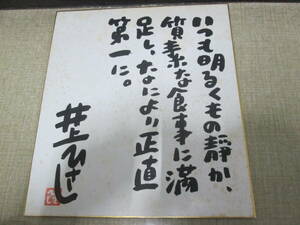 いつも明るくもの静か、
質素な食事に満
足し、なにより正直
第一に。
井上ひさし